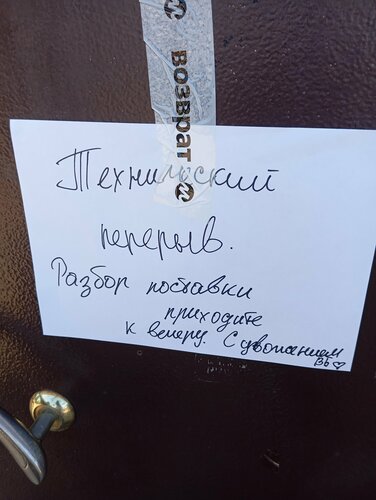 ВОЗВРАТ
Технический
перерыв.
Разбор поставки
приходите
к вечеру. С уважением
ВБ ♡